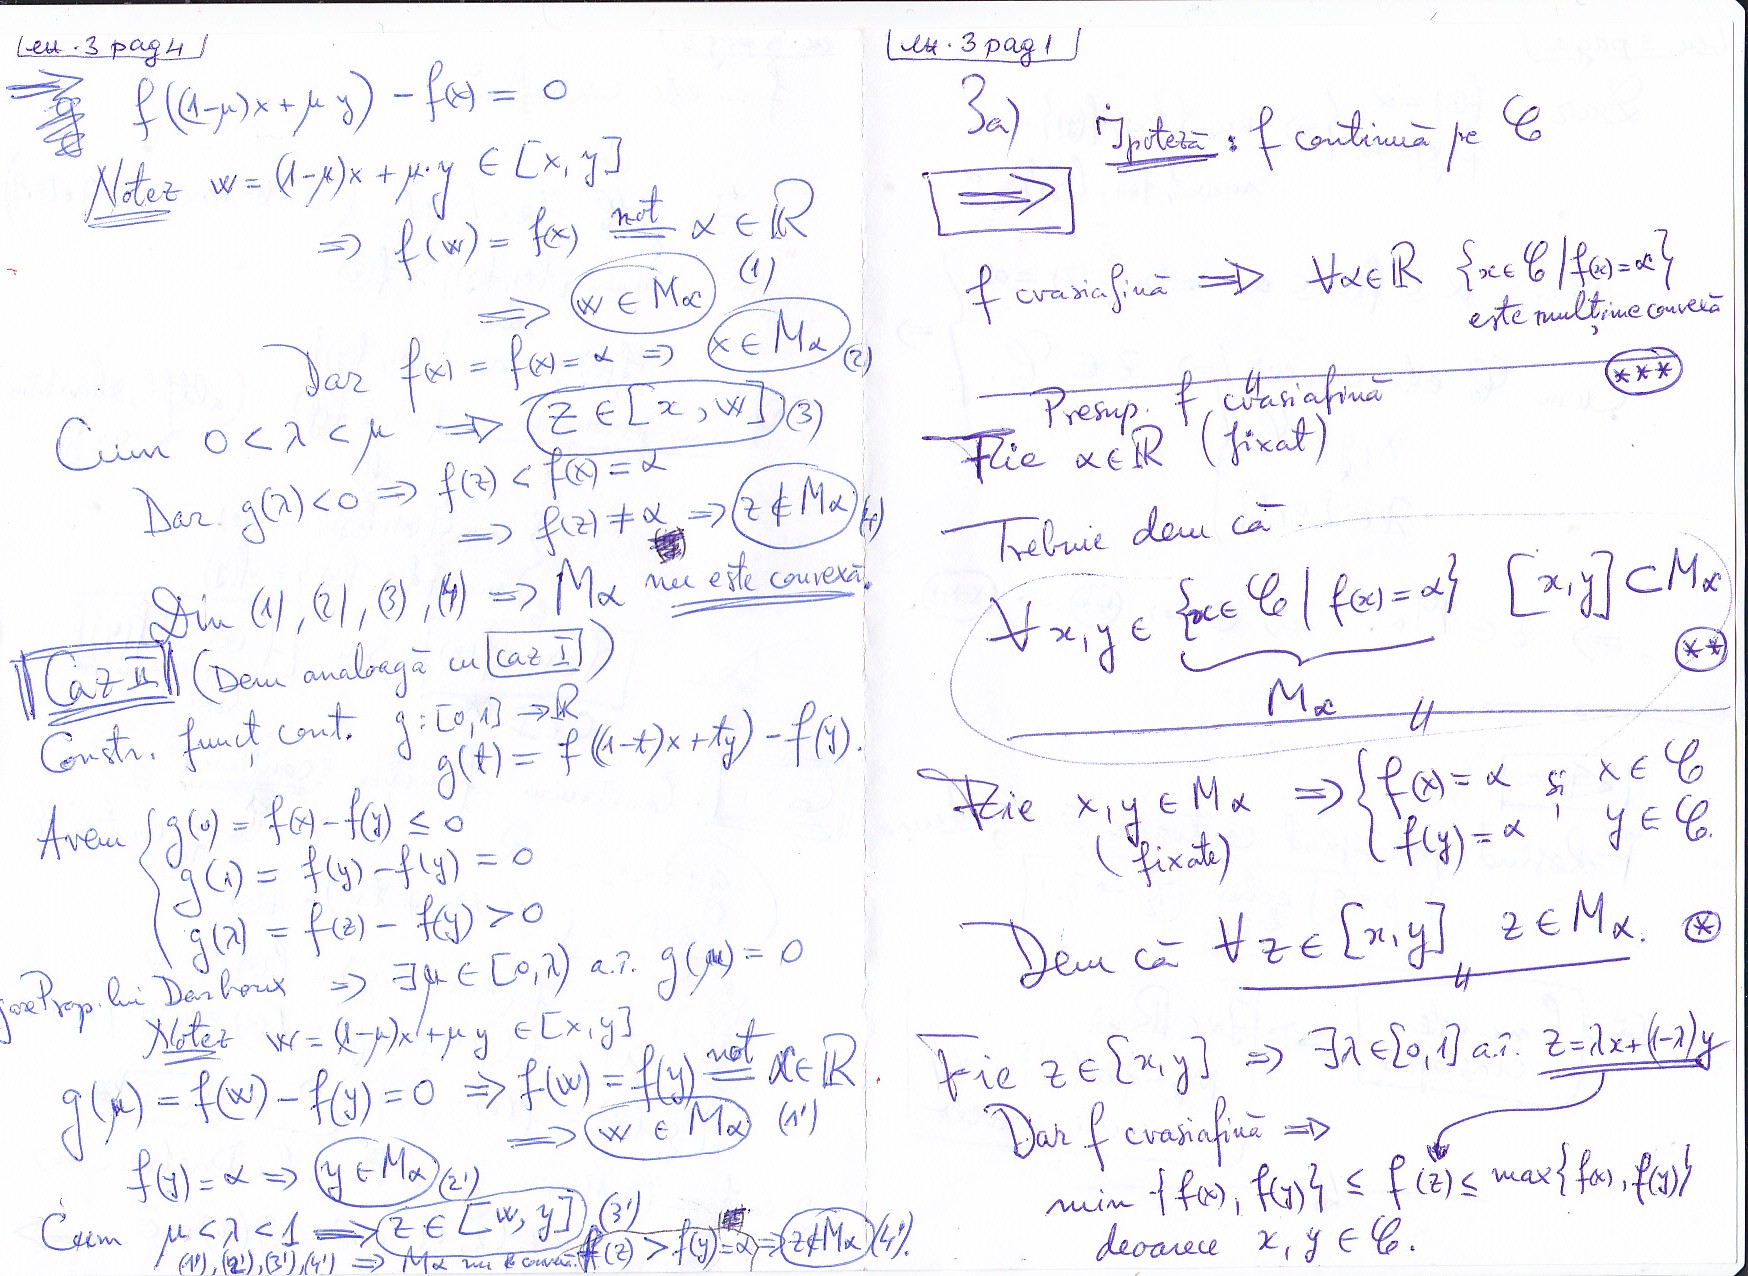 Ex. 3 pag 4
⇒ f((1-μ)x + μy) - f(x) = 0
Notez w = (1-μ)x + μ·y ∈ [x, y]
⇒ f(w) = f(x) not= α ∈ ℝ
⇒ w ∈ Mα (1)
Dar f(x) = f(x) = α ⇒ x ∈ Mα (2)
Cum 0 < λ < μ ⇒ z ∈ [x, w] (3)
Dar g(λ) < 0 ⇒ f(z) < f(x) = α
⇒ f(z) ≠ α ⇒ z ∉ Mα (4)
Din (1), (2), (3), (4) ⇒ Mα nu este convexă.
Caz II (Dem analoagă cu caz I)
Constr. funcț cont. g: [0,1] → ℝ
g(t) = f((1-t)x + ty) - f(y).
Avem { g(0) = f(x) - f(y) ≤ 0
g(1) = f(y) - f(y) = 0
g(λ) = f(z) - f(y) > 0
Prop. lui Darboux ⇒ ∃μ ∈ [0, λ) a.î. g(μ) = 0
Notez w = (1-μ)x + μy ∈ [x, y]
g(μ) = f(w) - f(y) = 0 ⇒ f(w) = f(y) not= α ∈ ℝ
⇒ w ∈ Mα (1')
f(y) = α ⇒ y ∈ Mα (2')
Cum μ < λ < 1 ⇒ z ∈ [w, y] (3')
f(z) > f(y) = α ⇒ z ∉ Mα (4').
(1'), (2'), (3'), (4') ⇒ Mα nu e convexă
Ex. 3 pag 1
3a) Ipoteză: f continuă pe C
⇒
f cvasiafină ⇒ ∀α∈ℝ {x∈C | f(x) = α}
este mulțime convexă
***
Presup. f cvasiafină
Fie α∈ℝ (fixat)
Trebuie dem că
∀ x, y ∈ {x∈C | f(x) = α} [x, y] ⊂ Mα
**
Mα
Fie x, y ∈ Mα ⇒ { f(x) = α și x ∈ C
(fixate) f(y) = α y ∈ C.
Dem că ∀ z ∈ [x, y] z ∈ Mα. *
Fie z ∈ [x, y] ⇒ ∃λ∈[0,1] a.î. z = λx + (1-λ)y
Dar f cvasiafină ⇒
min {f(x), f(y)} ≤ f(z) ≤ max{f(x), f(y)}
deoarece x, y ∈ C.